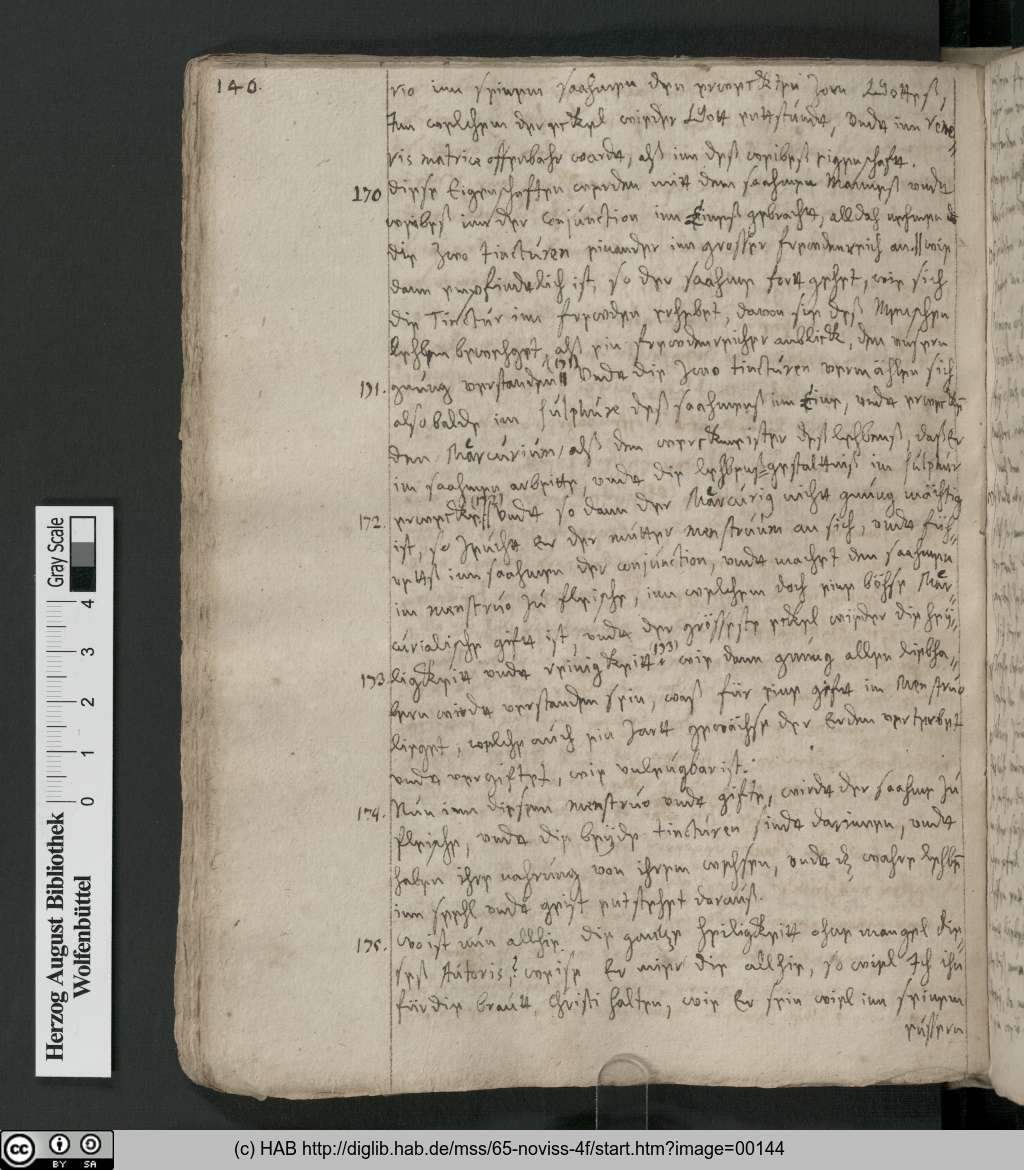 140.
rio inn seinem saahmen den erweckten Zorn Gottes,
Inn welchem der eckel wieder Gott entstünde, vnndt inn vene=
ris matrice offenbahr wardt, alß inn deß weibeß eigenschafft.
170 diese Eigenschafften werden mitt dem saahmen Manneß vnndt
weibeß inn der Conjunction inn Eineß gebracht, alldah nehmen
die Zwo tincturen einander inn grosser frewdenreich an // wie
dann empfindtlich ist, so der saahme fortt gehet, wie sich
die Tinctur inn frewden erhebet, davon sie deß Menschen
lehben beweget, alß ein frewdenreicher anblick, den vnsern
171. gnung verstanden // (171) Vndt die Zwo tincturen vermählen sich
also balde im sulphure deß saahmenß im Eine, vndt erwecken
den Marcurium / alß den werckmeister deß lehbenß, daß Er
im saahmen arbeitte, vndt die lehbenß=gestaltniß im sulphur
172. erwecket // (172) Vndt so dann der Marcurig nicht gnung mächtig
ist, so Zeücht Er der mutter menstruum an sich, vndt füh=
rettß inn saahmen der conjunction, vndt machet den saahmen
im menstruo Zu fleische, inn welchem doch eine böhse Mar=
curialische gifft ist, vndt der grösseste eckel wieder die hey=
173. ligkeitt vndt reinigkeitt (173) wie dann gnung allen liebha=
bern wirdt verstanden sein, waß für eine gifft im Menstruo
lieget, welche auch ein Zartt gewächse der Erden verterbet
vndt vergifftet, wie vnleugbar ist.
174. Nun inn diesem menstruo vndt giffte, wirdt der saahme Zu
fleische, vndt die beyde tincturen sindt darinnen, vndt
haben ihre nahrung von ihrem wehsen, vndt dz wahre lehben
inn seehl vndt geist entstehet darauß.
175. Wo ist nun allhie die gantze heiligkeitt ohne mangel die=
seß Autoris,? weise Er mier die allhie, so wiel Ich ihn
für die braut Christi halten, wie Er sein wiel inn seinem
eüssern
Herzog August Bibliothek
Wolfenbüttel
0 1 2 3 4
Gray Scale
cc BY SA
(c) HAB http://diglib.hab.de/mss/65-noviss-4f/start.htm?image=00144